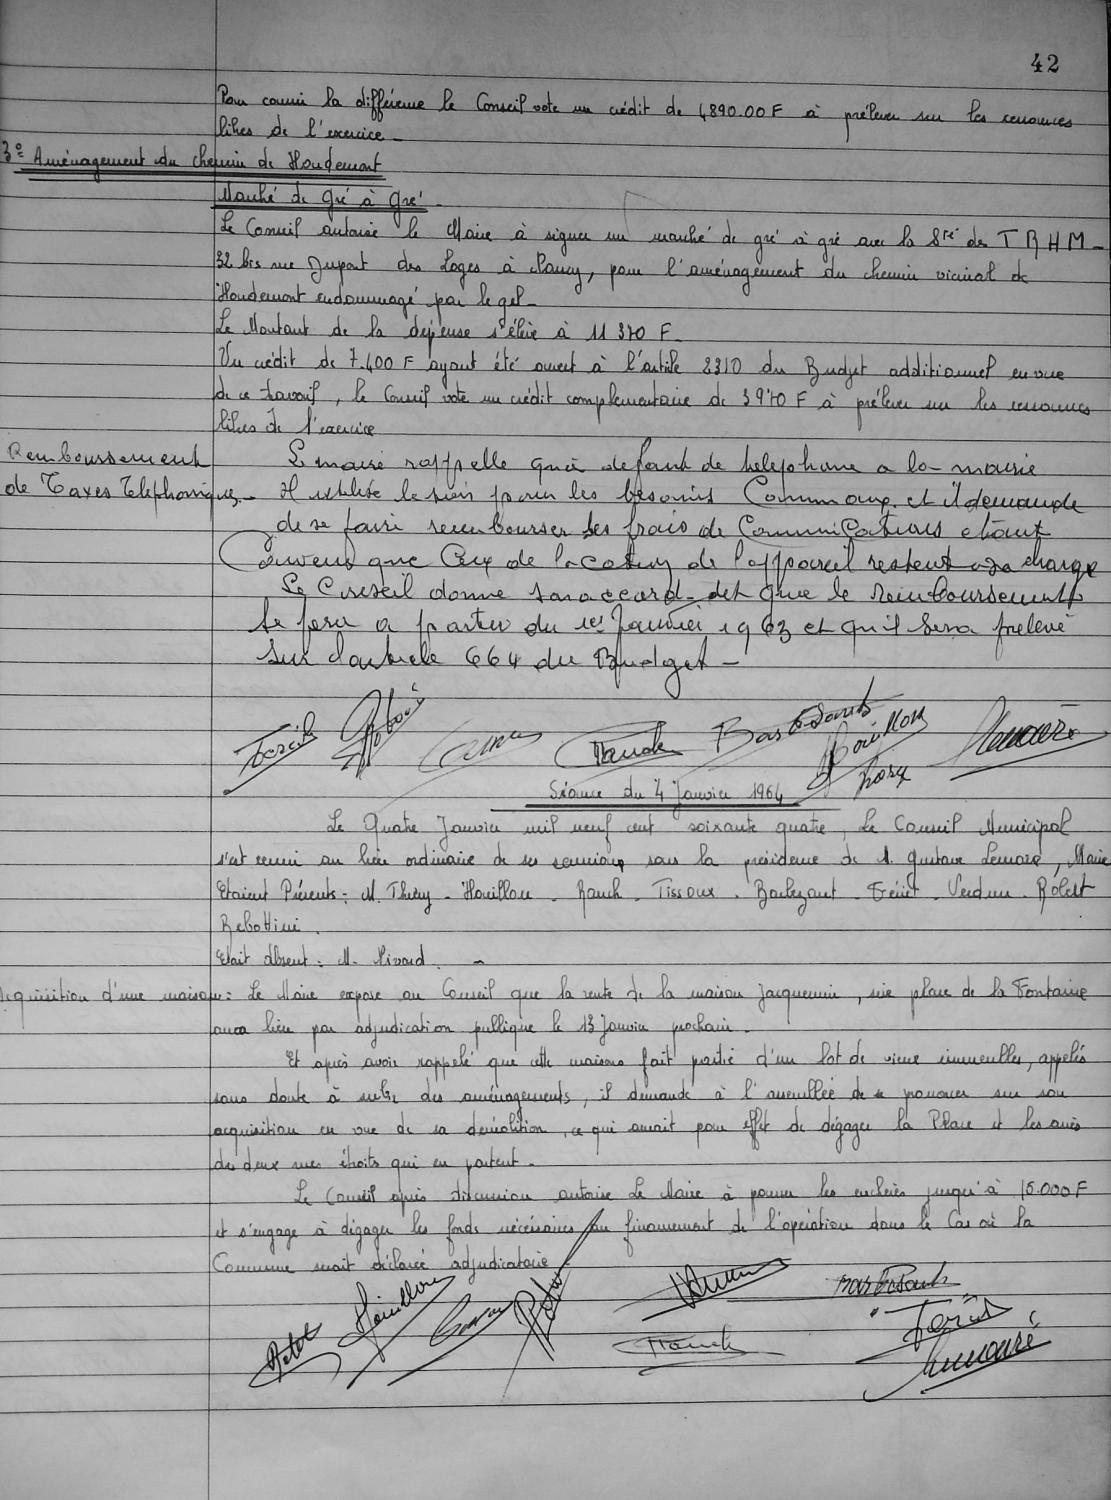 42
Pour couvrir la différence le Conseil vote un crédit de 4890.00 F à prélever sur les ressources
libres de l'exercice _
3° Aménagement du chemin de Houdemont
Marché de gré à gré _
Le Conseil autorise le Maire à signer un marché de gré à gré avec la Sté des T R H M _
32 bis rue Dupont des Loges à Nancy, pour l'aménagement du chemin vicinal de
Houdemont endommagé par le gel _
Le Montant de la dépense s'élève à 11 370 F _
Un crédit de 7.400 F ayant été ouvert à l'article 2310 du Budget additionnel en vue
de ce travail, le Conseil vote un crédit complémentaire de 3970 F à prélever sur les ressources
libres de l'exercice
Remboursement
de Taxes Telephoniques _
Le maire rappelle qu'a defaut de telephone a la mairie
Il utilise le sien pour les besoins Communaux et il demande
de se faire rembourser ses frais de Communications etant
Convenu que Ceux de location de l'appareil restent a sa charge
Le Conseil donne son accord _ dit que le remboursement
se fera a partir du 1er Janvier 1963 et qu'il sera prelevé
sur l'article 664 du Budget _
Férié Houillon Rauch Barbezant Lemoine
Séance du 4 Janvier 1964
Le Quatre Janvier mil neuf cent soixante quatre, Le Conseil Municipal
s'est réuni au lieu ordinaire de ses réunions sous la présidence de M. Gustave Lemoine, Maire
Etaient Présents : M. Thiéry - Houillon - Rauch - Tissoux - Barbezant - Fériet - Verdun - Robert
Rebottini.
Etait Absent : M. Nivard. _
Acquisition d'une maison : Le Maire expose au Conseil que la vente de la maison Jacquemin, sise place de la Fontaine
aura lieu par adjudication publique le 13 Janvier prochain.
Et après avoir rappelé que cette maison fait partie d'un lot de vieux immeubles, appelés
sans doute à subir des aménagements, il demande à l'assemblée de se prononcer sur son
acquisition en vue de sa démolition, ce qui aurait pour effet de dégager la Place et les accès
des deux rues étroites qui en partent.
Le Conseil après discussion autorise Le Maire à pousser les enchères jusqu'à 15.000 F
et s'engage à dégager les fonds nécessaires au financement de l'opération dans le Cas où la
Commune serait déclarée adjudicataire.
Houillon Barbezant
Rauch